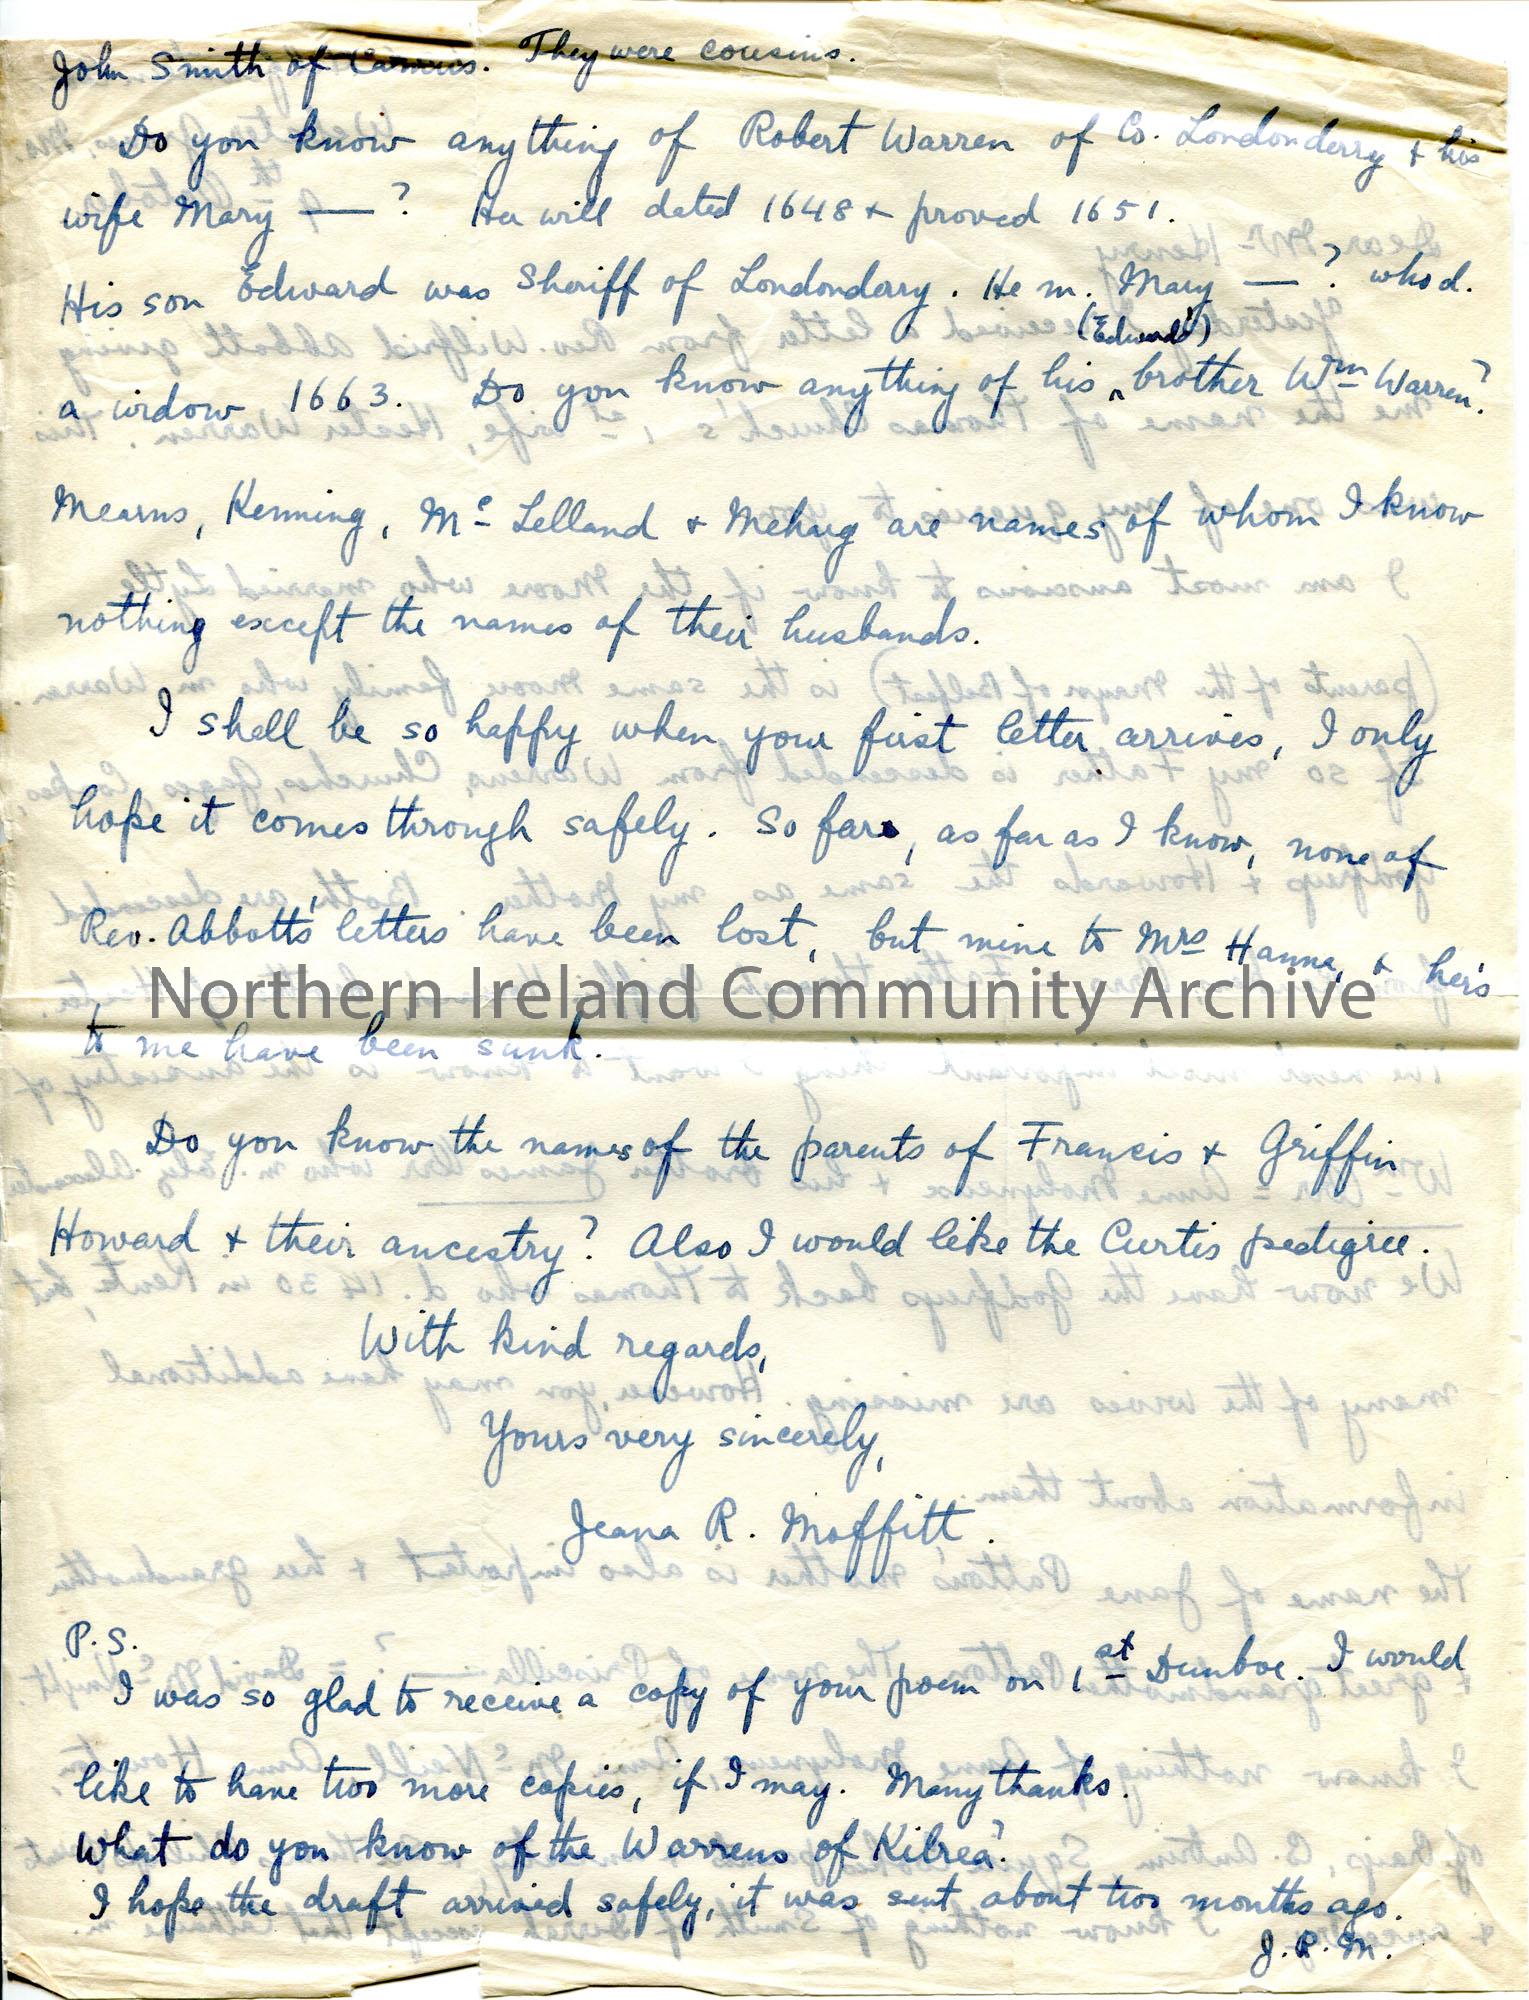 John Smith of . They were cousins.
Do you know anything of Robert Warren of Co. Londonderry & his
wife Mary —? Her will dated 1648 & proved 1651.
His son Edward was Sheriff of Londonderry. He m. Mary —? who d.
(Edward's)
a widow 1663. Do you know anything of his ^ brother Wm Warren?
Mearns, Kenning, Mc Lelland & Mehaig are names of whom I know
nothing except the names of their husbands.
I shall be so happy when your first letter arrives, I only
hope it comes through safely. So far, as far as I know, none of
Rev. Abbott's letters have been lost, but mine to Mrs Hanna, & her's
Northern Ireland Community Archive
to me have been sunk.
Do you know the names of the parents of Francis & Griffin
Howard & their ancestry? Also I would like the Curtis pedigree.
With kind regards,
Yours very sincerely,
Jeana R. Moffitt.
P.S.
I was so glad to receive a copy of your poem on 1st Dunboe. I would
like to have two more copies, if I may. Many thanks.
What do you know of the Warrens of Kilrea?
I hope the draft arrived safely, it was sent about two months ago.
J. R. M.